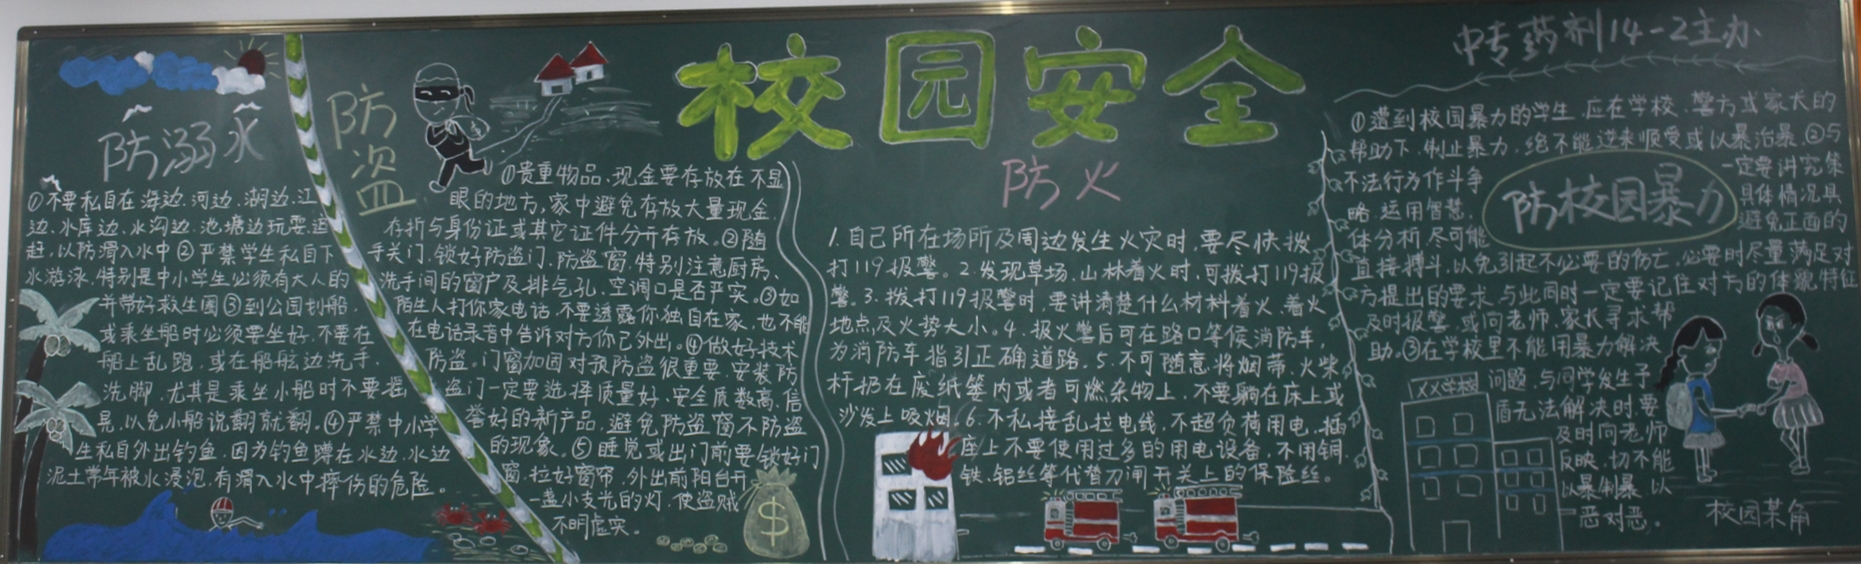 校园安全
中专药剂14-2主办
防溺水
①不要私自在海边、河边、湖边、江
边、水库边、水沟边、池塘边玩耍追
赶,以防滑入水中②严禁学生私自下
水游泳,特别是中小学生必须有大人的
并带好救生圈③到公园划船,
或乘坐船时必须要坐好,不要在
船上乱跑,或在船舷边洗手、
洗脚,尤其是乘坐小船时不要摇
晃,以免小船说翻就翻。④严禁中小学
生私自外出钓鱼,因为钓鱼蹲在水边,水边
泥土常年被水浸泡,有滑入水中摔伤的危险。
防盗
①贵重物品、现金要存放在不显
眼的地方,家中避免存放大量现金,
存折与身份证或其它证件分开存放。②随
手关门,锁好防盗门、防盗窗,特别注意厨房、
洗手间的窗户及排气孔、空调口是否严实。③如
陌生人打你家电话,不要透露你独自在家,也不能
在电话录音中告诉对方你已外出。④做好技术
防盗。门窗加固对预防盗很重要,安装防
盗门一定要选择质量好、安全质数高、信
誉好的新产品,避免防盗窗不防盗
的现象。⑤睡觉或出门前要锁好门
窗,拉好窗帘,外出前阳台开
一盏小支光的灯,使盗贼
不明虚实。
$
防火
1.自己所在场所及周边发生火灾时,要尽快拨
打119报警。2.发现草场、山林着火时,可拨打119报
警。3.拨打119报警时,要讲清楚什么材料着火、着火
地点及火势大小。4.报火警后可在路口等候消防车,
为消防车指引正确道路。5.不可随意将烟蒂、火柴
杆扔在废纸篓内或者可燃杂物上,不要躺在床上或
沙发上吸烟。6.不私接乱拉电线,不超负荷用电,插
座上不要使用过多的用电设备,不用铜、
铁、铝丝等代替刀闸开关上的保险丝。
防校园暴力
①遭到校园暴力的学生,应在学校、警方或家长的
帮助下,制止暴力,绝不能逆来顺受或以暴治暴。②与
不法行为作斗争 一定要讲究策
略,运用智慧, 具体情况具
体分析,尽可能 避免正面的
直接搏斗,以免引起不必要的伤亡,必要时尽量满足对
方提出的要求,与此同时一定要记住对方的体貌特征
及时报警,或向老师、家长寻求帮
助。③在学校里不能用暴力解决
问题,与同学发生矛
盾无法解决时,要
及时向老师
反映,切不能
以暴制暴,以
恶对恶。
XX学校
校园某角